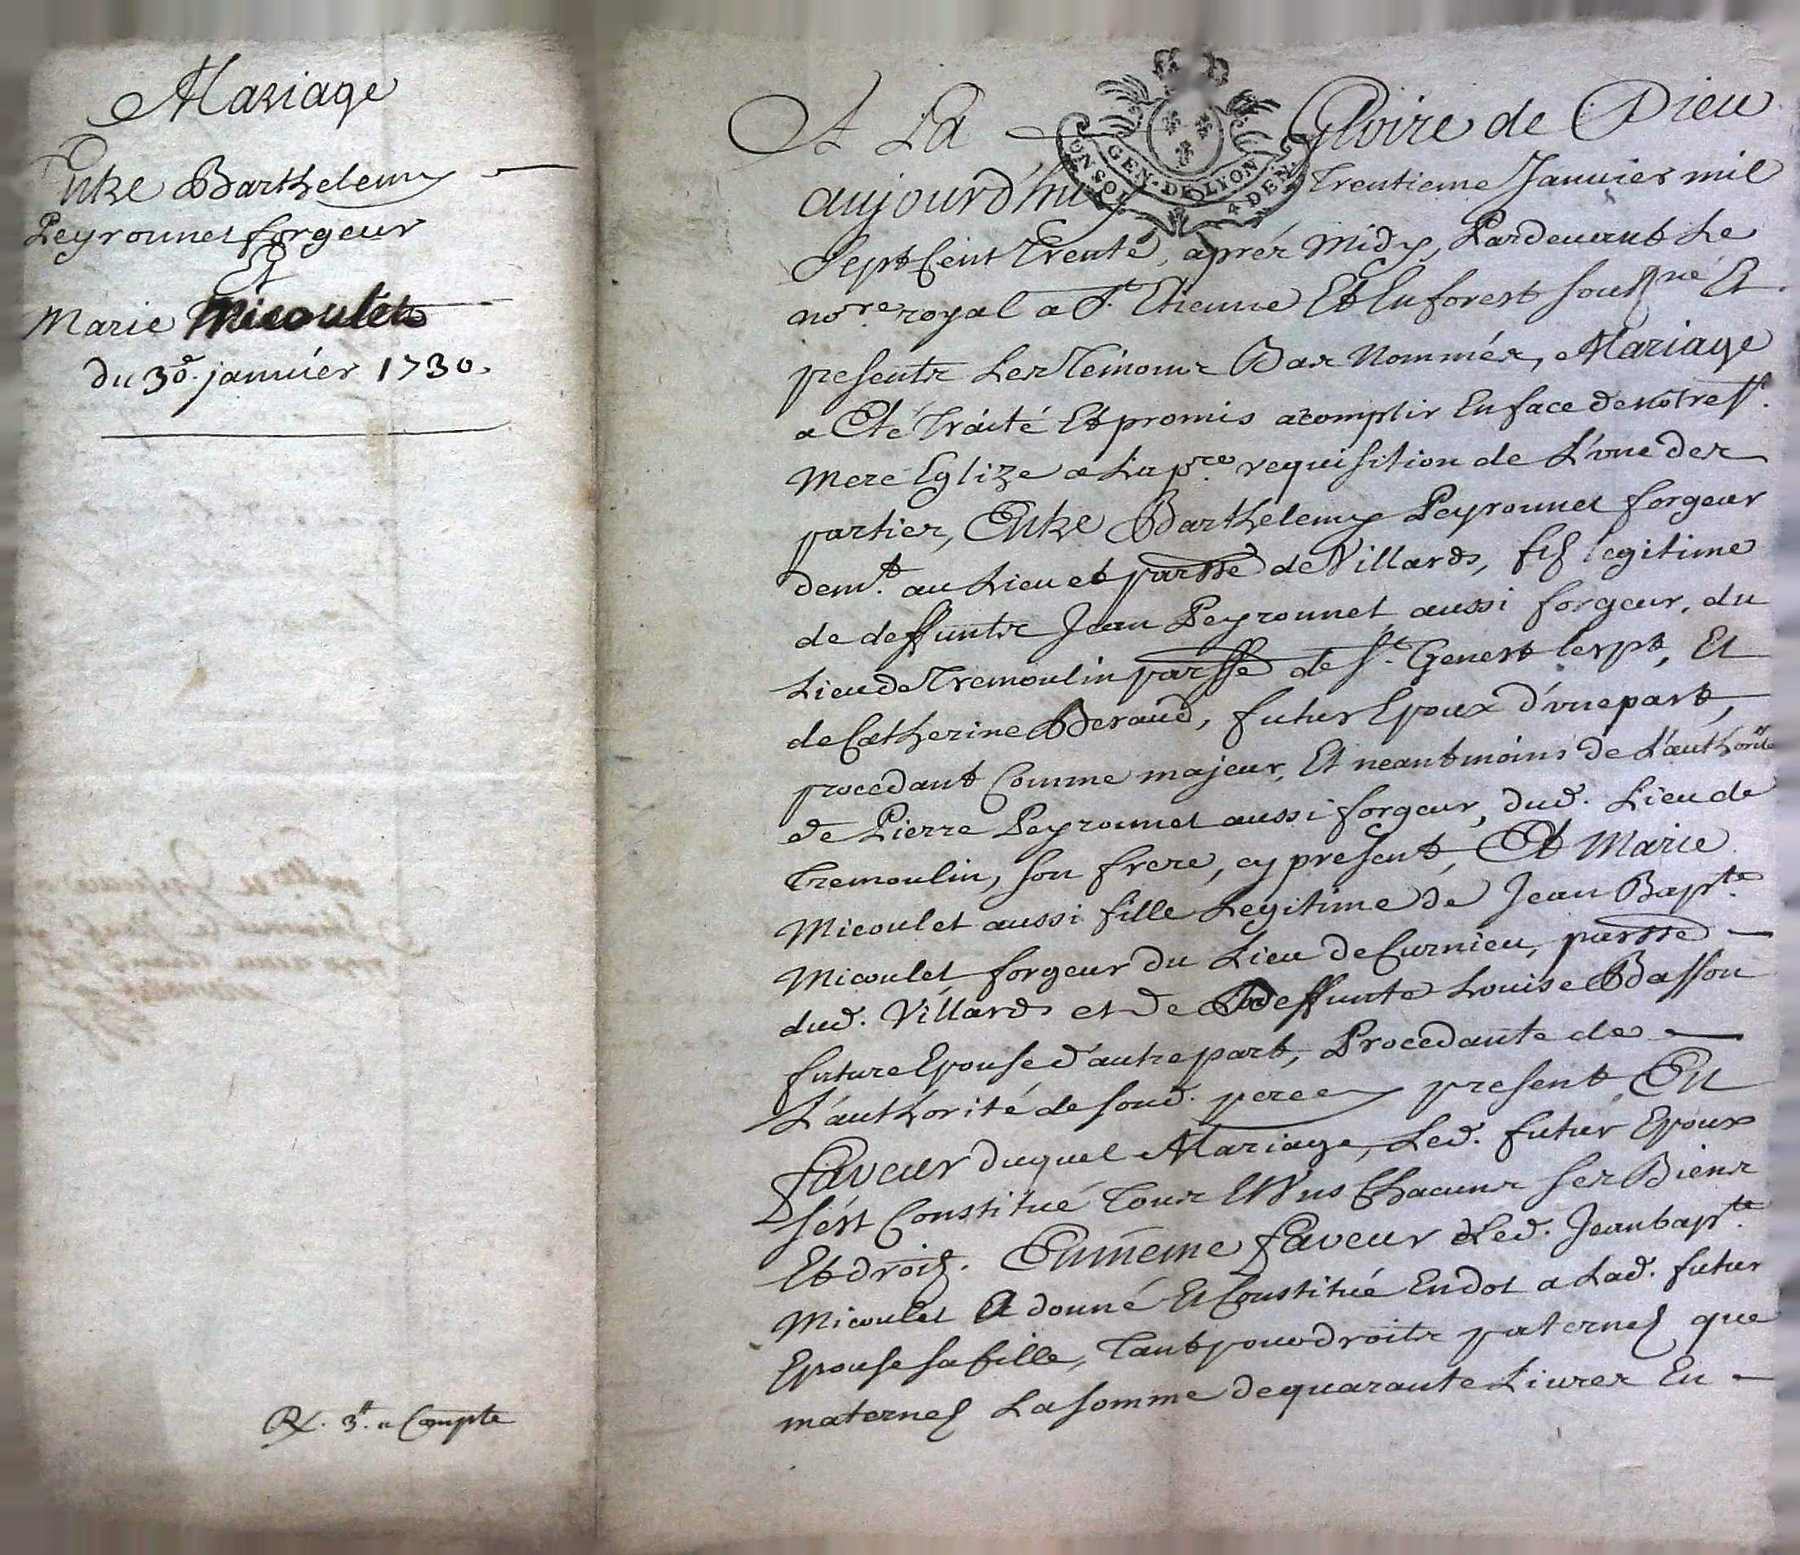 Mariage
Entre Barthelemy
Peyronnet forgeur
Et
Marie Micoulet
du 30e. janvier 1730.
Rx. 3tt. a Compte
A La Gloire de Dieu
GEN. DE LYON
4 DEN.
aujourd'huy Trentieme Janvier mil
Sept Cent Trente, aprés Midy, Pardevant Le
nore. royal a St. Etienne Et En forest sousné Et
presents Les Témoins Bas Nommés, Mariage
a Eté Traité Et promis acomplir En face de notre St.
Mere Eglize a La pre. requisition de L'une des
parties, Entre Barthelemy Peyronnet forgeur
demt. au Lieu et parsse de Villards, fils legitime
de deffunts Jean Peyronnet aussi forgeur, du
Lieu de Tremoulin parsse de St. Genest lerpt, Et
de Catherine Beraud, futur Epoux d'une part,
procedant Comme majeur, Et neantmoins de L'authorité
de Pierre Peyronnet aussi forgeur, dud. Lieu de
Tremoulin, son frere, cy present, Et Marie
Micoulet aussi fille Legitime de Jean Bapte.
Micoulet forgeur du Lieu de Curnieu, parsse
dud. Villards et de deffunte Louise Basson
future Epouse d'autre part, Procedante de
L'authorité de soud. pere present, En
faveur duquel Mariage, Led. futur Epoux
s'est Constitué Tous Et Uns Chacuns ses Biens
Et droits. En même faveur Led. Jean bapte.
Micoulet A donné Et Constitué En dot a Lad. futur
Epouse sa fille, Tant pour droits paternels que
maternels La somme de quarante Livres En